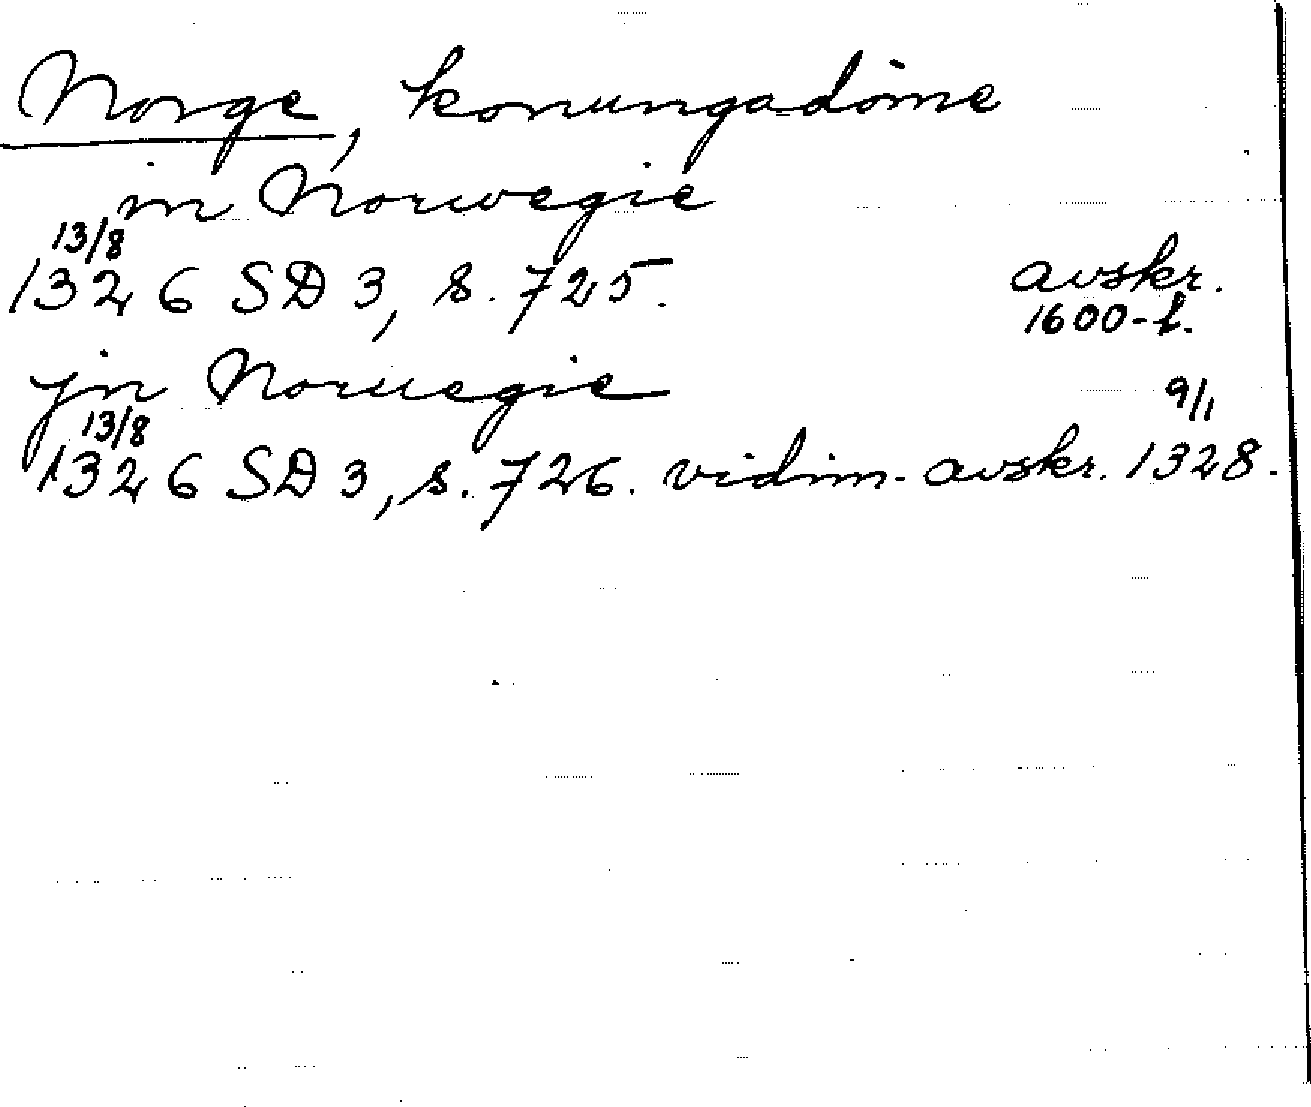 Norge, konungadöme
in Norwegie
13/8
1326 SD 3, s. 725. avskr.
1600-t.
jn Noruegie
13/8 9/1
1326 SD 3, s. 726. vidim. avskr. 1328.